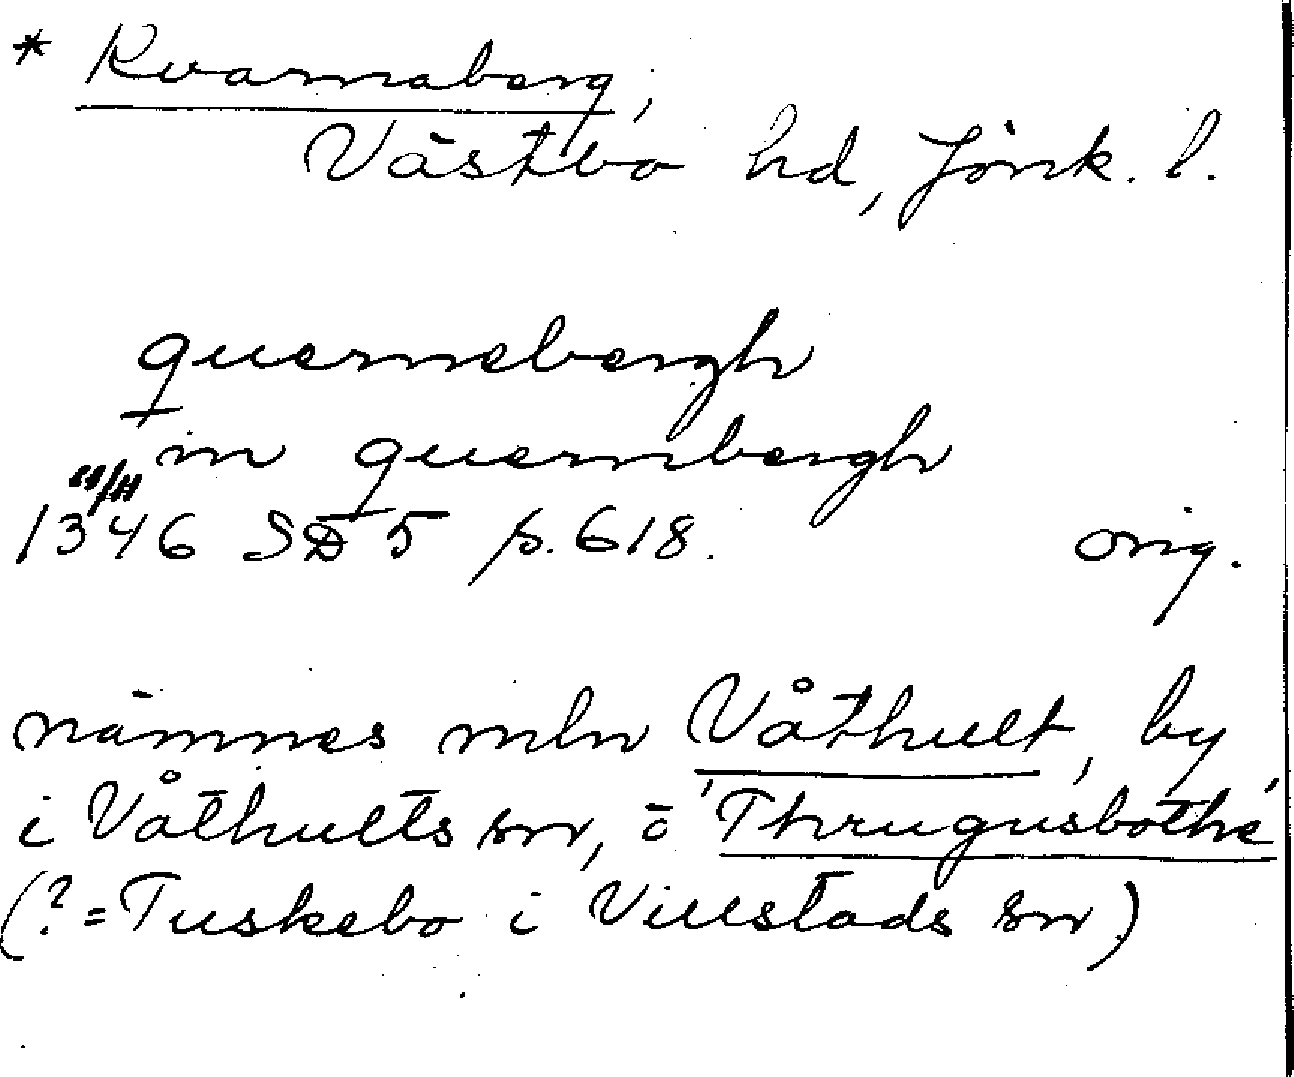 * Kvarnaberg,
Västbo hd, Jönk. l.
quernebergh
in quernbergh
11/11
1346 SD 5 p. 618. orig.
nämnes mln Våthult, by
i Våthults sn, o 'Thrugusbothe'
(?=Tuskebo i Villstads sn)